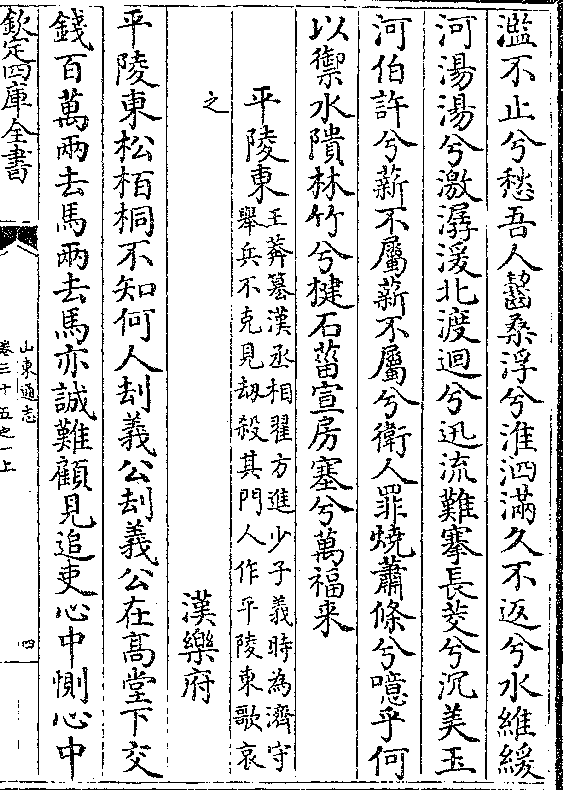 濫不止兮愁吾人齧桑浮兮淮泗滿久不返兮水維緩
河湯湯兮激潺湲北渡迴兮迅流難搴長茭兮沉美玉
河伯許兮薪不屬薪不屬兮衛人罪燒蕭條兮噫乎何
以禦水隤林竹兮揵石菑宣房塞兮萬福来
平陵東王莽簒漢丞相翟方進少子義時為濟守
舉兵不克見劫殺其門人作平陵東歌哀
之
漢樂府
平陵東松栢桐不知何人刦義公刦義公在髙堂下交
錢百萬兩去馬兩去馬亦誠難顧見追吏心中惻心中
欽定四庫全書
山東通志
卷三十五之一上
四